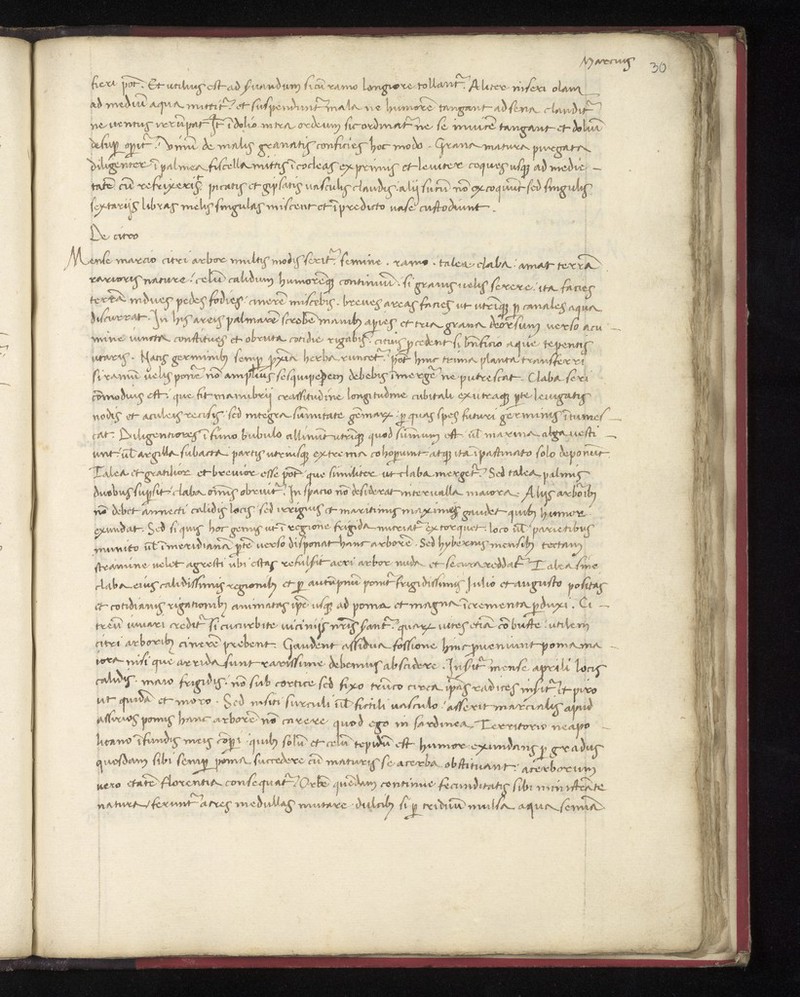 Marcius 30
fieri pōt. Et utilius est ad suandum si cū ramo longiore tollantr̄. Alitre in seri olam
ad mediū aqua mittitr̄ et suspenduntr̄ mala ne humorē tangant ad sera clauditr̄
ne uentus
tangant et doliū
Vinū de malis granatis conficies hoc modo. Grana matura purgata
diligenter ī palmea fiscella mittis ī cocleas exprimis et leuiter coques usq̄ ad medie
tatē cū refrixerit picatis et gipsatis uasculis claudis. alij sucū nō excoquūt sed singulis
sextarijs libras mellis singulas miscent et ī predicto uase custodiunt.
De citro
Mense marcio citri arbor multis modis seritr̄. semine. ramo. talea. claba. amat terrā
rarioris nature. celū calidum humorēq̄ continuū. si granis uelis serere. ita facies
terrā in dues pedes fodies. cinerē miscebis. breues areas facies ut utrīq̄ p̄ canales aqua
discurrat. In his areis palmarē scrobē manib apies et tria grana deorsum uerso acu
mine iuncta constitues et obruta cotidie rigabis. citius p̄cedent si bn̄ficio aque tepentis
utaris. Natis germinib semp̄ herba runcetr̄. hinc trima planta transferri
si ramū uelis ponē nō amplius sesquipedem debebis īmergē ne putrescat. Claba seri
cōmodius est. que sit manubrij crassitudine longitudine cubitali ex utraq̄ p̄te leuigatis
nodis et aculeis recisis. sed integra sūmitate gēmarx. p̄ quas spes futuri germinis ītumes
cat. Diligentiores ī fimo bubulo allinunt utrīq̄ quod sūmum est. ul̄ marina alga uesti
unt. ul̄ argilla subacta partis utriusq̄ extrema cohoperiunt. atq̄ ita ī pastinato solo deponūt.
Talea et gratilior et breuior esse pōt. que similiter ut claba mergetr̄. Sed talea palmis
duobus supsit. claba omīs obruitr̄. In spacio nō desiderat interualla maiora. Alijs arborib
nō debet annecti calidis locis sed irriguis et maritimis maxime gaudet quib humor
exundat. Sed si quis hoc genus ut ī regione frigida nutriatr̄ extorquet. loco ul̄ parietibus
munito ul̄ ī meridianā p̄te uerso disponat hanc arborē. Sed hybernis mensib tectam
stramine uelet agresti ubi estas refulsit aeri arbor nuda et secura reddatr̄. Talea siue
claba eius calidissimis regionib et p̄ autūpnū ponitr̄ frigidissimis Julio et augusto positas
et cotidianis rigationib animatas ip̄e usq̄ ad poma et magna īcrementa p̄duxi. Ci
treū iuuari creditr̄ si cucurbite uicinijs nr̄is santr̄. quarx uites etiā cōbuste. utilem
citri arborib cinerē prebent. Gaudent assidua fossione hinc p̄ueniunt poma ma
iora nisi que arrida sunt rarissime debemus abscidere. Insitr̄ mense aprili locis
calidis. maio frigidis. nō sub cortice sed fixo trūco circa ip̄as radices insitr̄ et piro
ut quidā et moro. Sed insiti surculi ul̄ fictili uasculo. asserit marcialis apud
assirios pomis hanc arborē nō carere. quod ego in sardinea Territorio neapo
litano ī fundis meis cōperi. quib solū et celū tepidū est humor exundans p̄ gradus
quosdam sibi semp̄ poma succedere cū maturis se acerba obstituant. acerborum
uero etatē florentia consequatr̄. Orbē quēdam continue fecunditatis sibi ministrāte
natura. feruntr̄ acres medullas mutare. dulcib si p̄ triduū mulsa aqua semīa